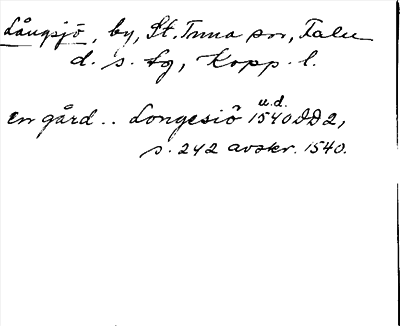 Långsjö, by, St. Tuna sn, Falu
d. s. fg, Kopp. l.
u.d.
en gård .. Longesiö 1540 DD2,
s. 242 avskr. 1540.